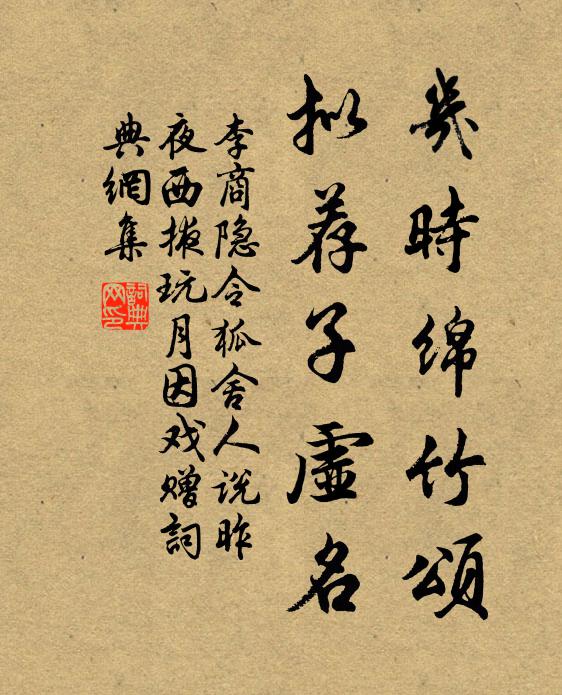 幾時綿竹頌
拟荐子虛名
李商隐令狐舍人说昨
夜西掖玩月因戏赠詞
典網集
詞典
网印